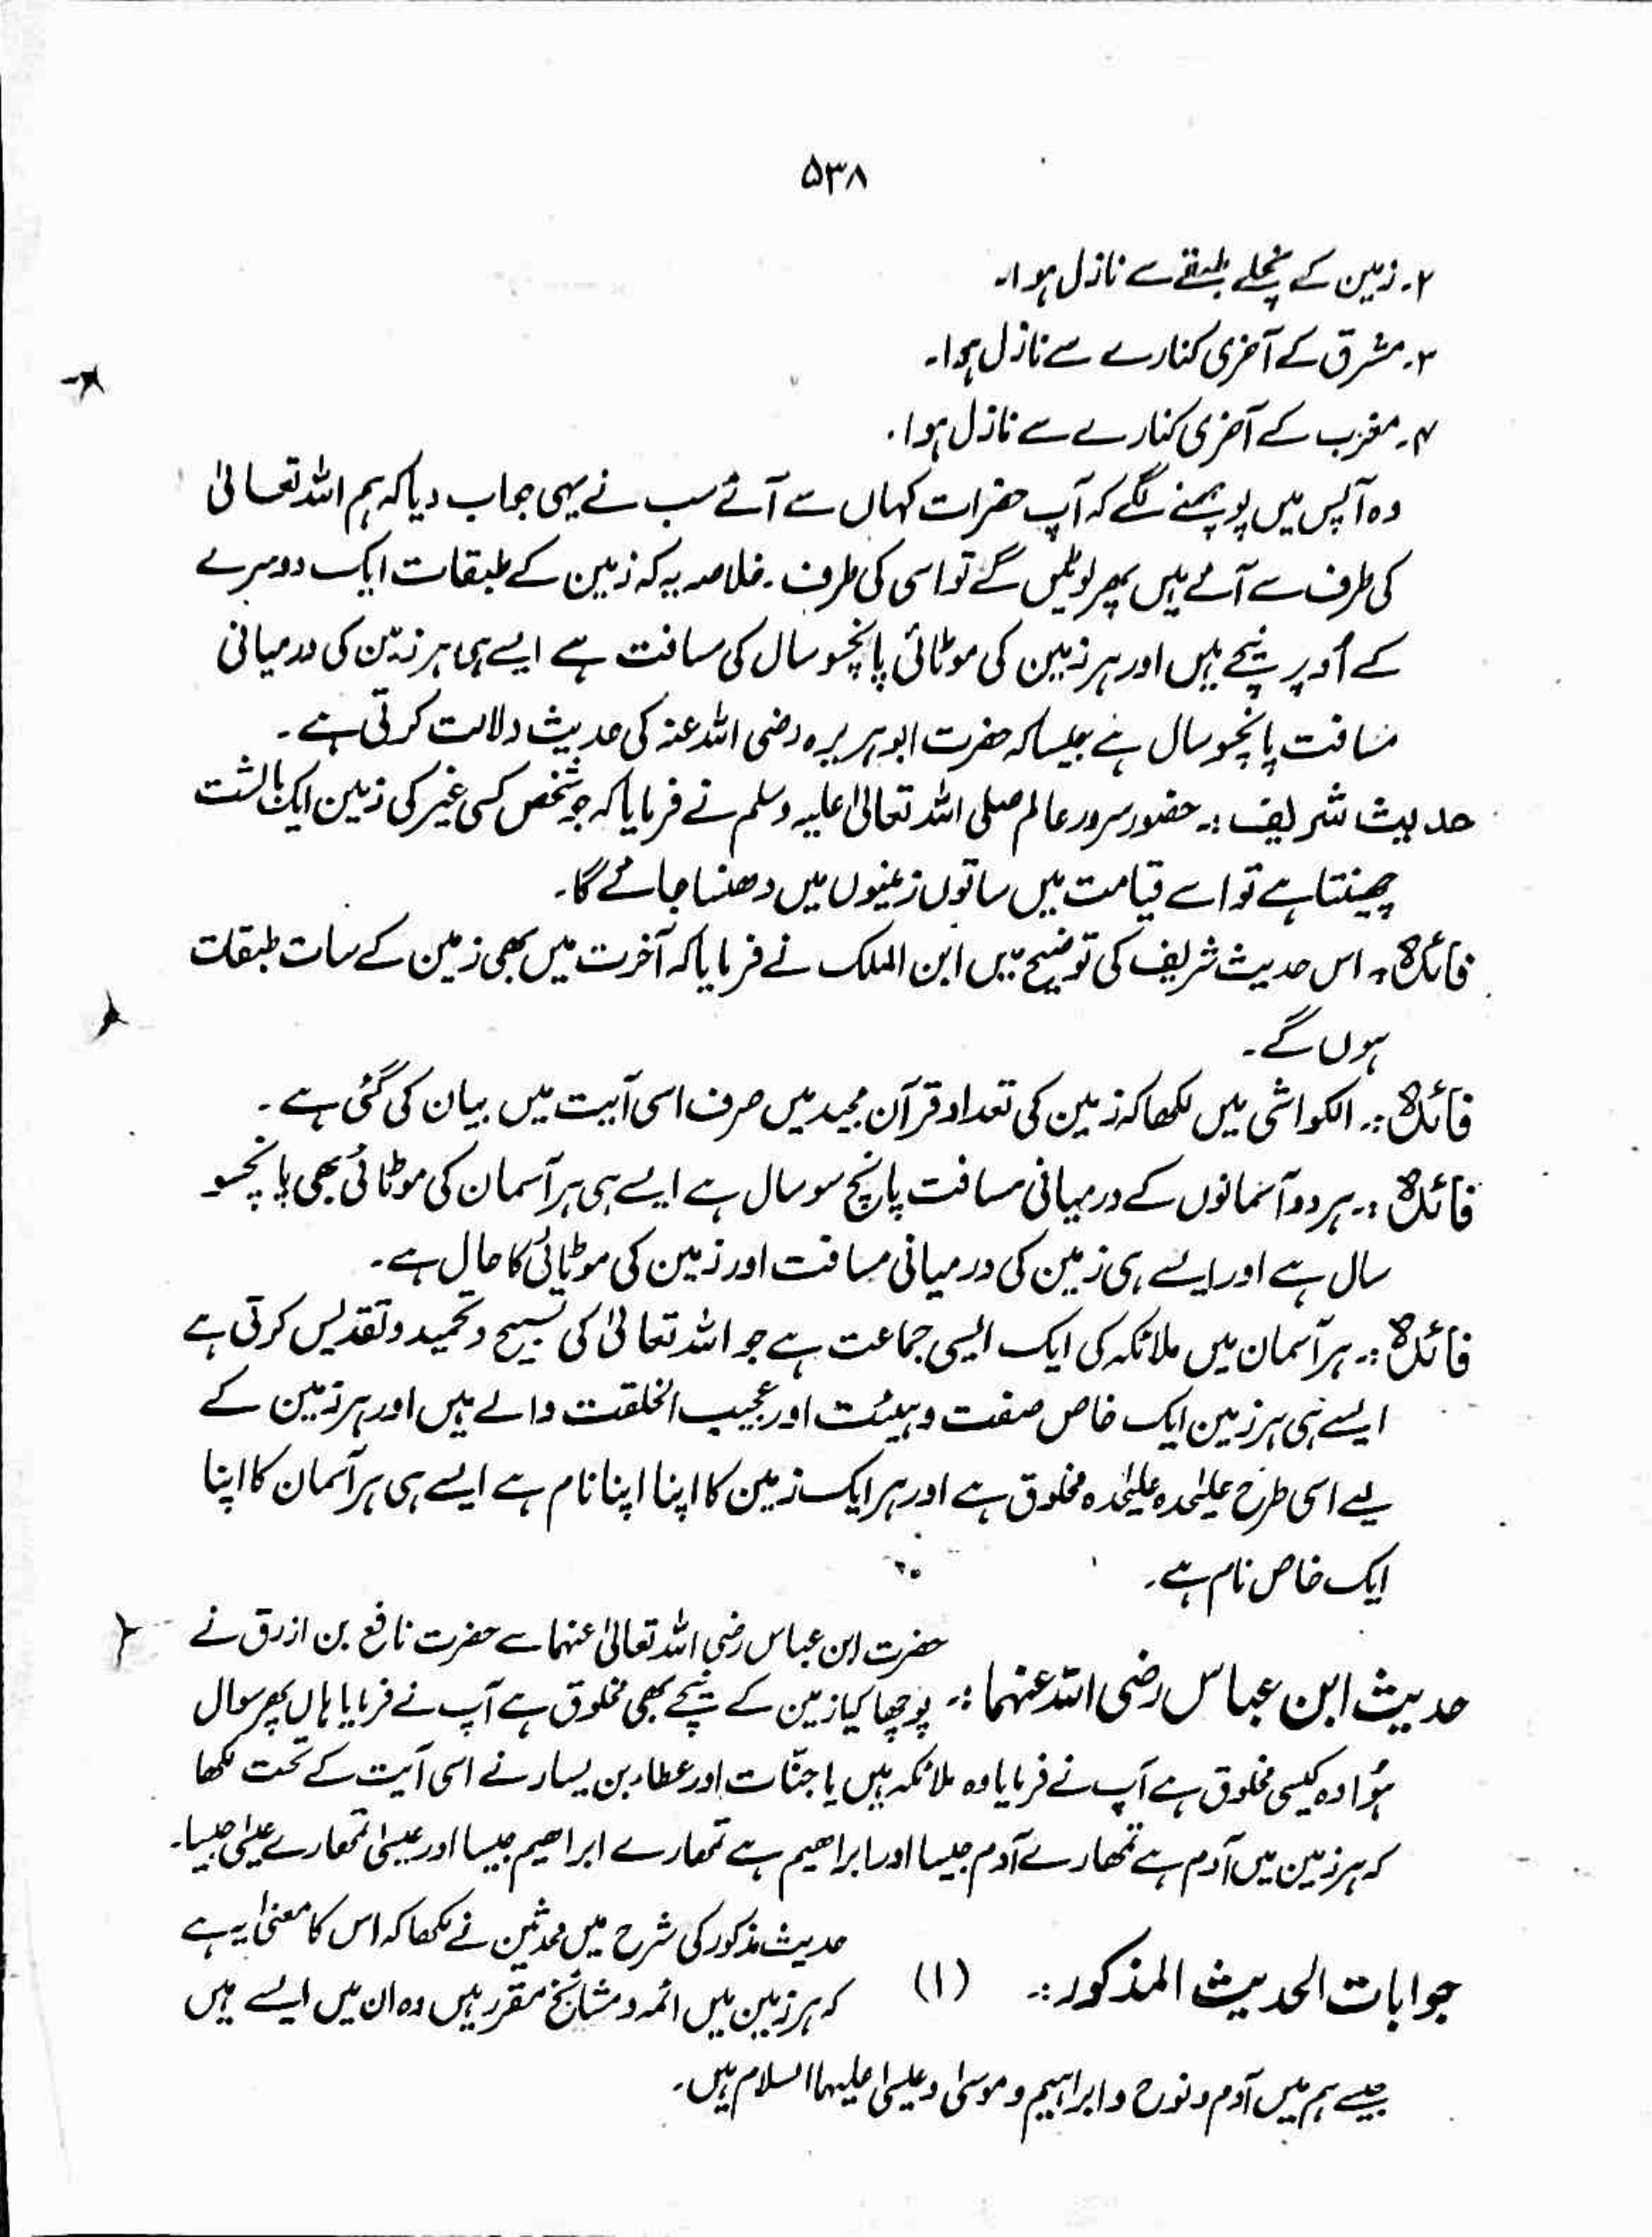 ۵۳۸
۲۔ زمین کے نچلے طبقے سے نازل ہوا۔
۳۔ مشرق کے آخری کنارے سے نازل ہوا۔
۴۔ مغرب کے آخری کنارے سے نازل ہوا۔
وہ آپس میں پوچھنے لگے کہ آپ حضرات کہاں سے آئے سب نے یہی جواب دیا کہ ہم اللہ تعالیٰ
کی طرف سے آئے ہیں پھر لوٹیں گے تو اسی کی طرف ۔ خلاصہ یہ کہ زمین کے طبقات ایک دوسرے
کے اُوپر نیچے ہیں اور ہر زمین کی موٹائی پانچسو سال کی مسافت ہے ایسے ہی ہر زمین کی درمیانی
مسافت پانچسو سال ہے جیسا کہ حضرت ابوہریرہ رضی اللہ عنہ کی حدیث دلالت کرتی ہے ۔
حدیث شریف :۔ حضور سرور عالم صلی اللہ تعالیٰ علیہ وسلم نے فرمایا کہ جو شخص کسی غیر کی زمین ایک بالشت
چھینتا ہے تو اسے قیامت میں ساتوں زمینوں میں دھنسا جائے گا۔
فائدہ :۔ اس حدیث شریف کی توضیح میں ابن الملک نے فرمایا کہ آخرت میں بھی زمین کے سات طبقات
ہوں گے ۔
فائدہ :۔ الکواشی میں لکھا کہ زمین کی تعداد قرآن مجید میں صرف اسی آیت میں بیان کی گئی ہے ۔
فائدہ :۔ ہر دو آسمانوں کے درمیانی مسافت پانچ سو سال ہے ایسے ہی ہر آسمان کی موٹائی بھی پانچسو
سال ہے اور ایسے ہی زمین کی درمیانی مسافت اور زمین کی موٹائی کا حال ہے ۔
فائدہ :۔ ہر آسمان میں ملائکہ کی ایک ایسی جماعت ہے جو اللہ تعالیٰ کی تسبیح و تحمید و تقدیس کرتی ہے
ایسے ہی ہر زمین ایک خاص صفت و ہیئت اور عجیب الخلقت والے ہیں اور ہر زمین کے
لیے اسی طرح علیٰحدہ علیٰحدہ مخلوق ہے اور ہر ایک زمین کا اپنا اپنا نام ہے ایسے ہی ہر آسمان کا اپنا
ایک خاص نام ہے ۔
حدیث ابن عباس رضی اللہ عنہما :۔ حضرت ابن عباس رضی اللہ تعالیٰ عنہما سے حضرت نافع بن ازرق نے
پوچھا کیا زمین کے نیچے بھی مخلوق ہے آپ نے فرمایا ہاں پھر سوال
ہُوا وہ کیسی مخلوق ہے آپ نے فرمایا وہ ملائکہ ہیں یا جنّات اور عطاء بن یسار نے اسی آیت کے تحت لکھا
کہ ہر زمین میں آدم ہے تمھارے آدم جیسا اور ابراھیم ہے تمھارے ابراھیم جیسا اور عیسیٰ تمھارے عیسیٰ جیسا۔
جوابات الحدیث المذکور :۔ (۱) حدیث مذکور کی شرح میں محدثین نے لکھا کہ اس کا معنیٰ یہ ہے
کہ ہر زمین میں ائمہ و مشائخ مقرر ہیں وہ ان میں ایسے ہیں
جیسے ہم میں آدم و نوح و ابراہیم و موسیٰ و عیسیٰ علیہما السلام ہیں۔